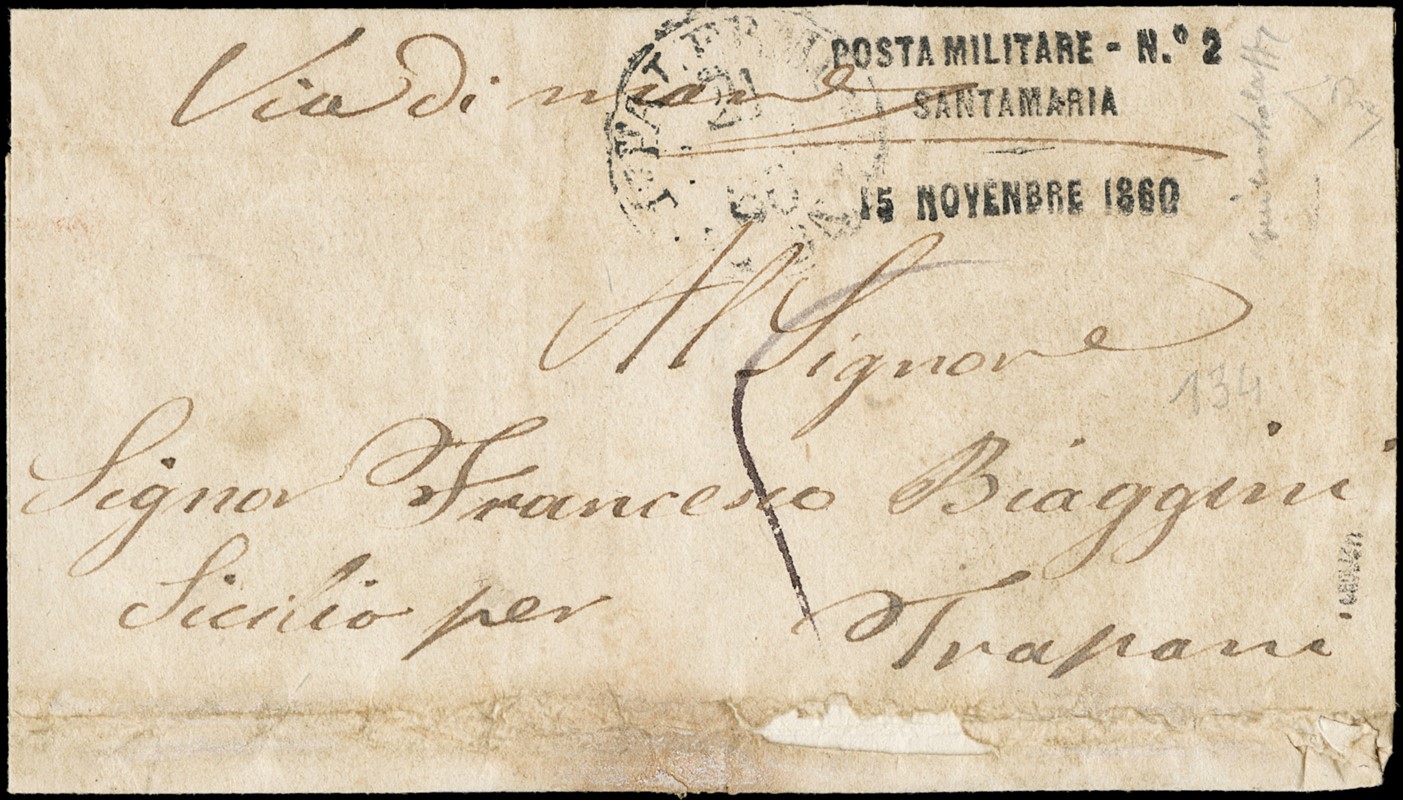 Via di mare
POSTA MILITARE - N.º 2
SANTAMARIA
15 NOVENBRE 1860
Al Signore
134
Signor Francesco Biaggini
Sicilio per Trapani